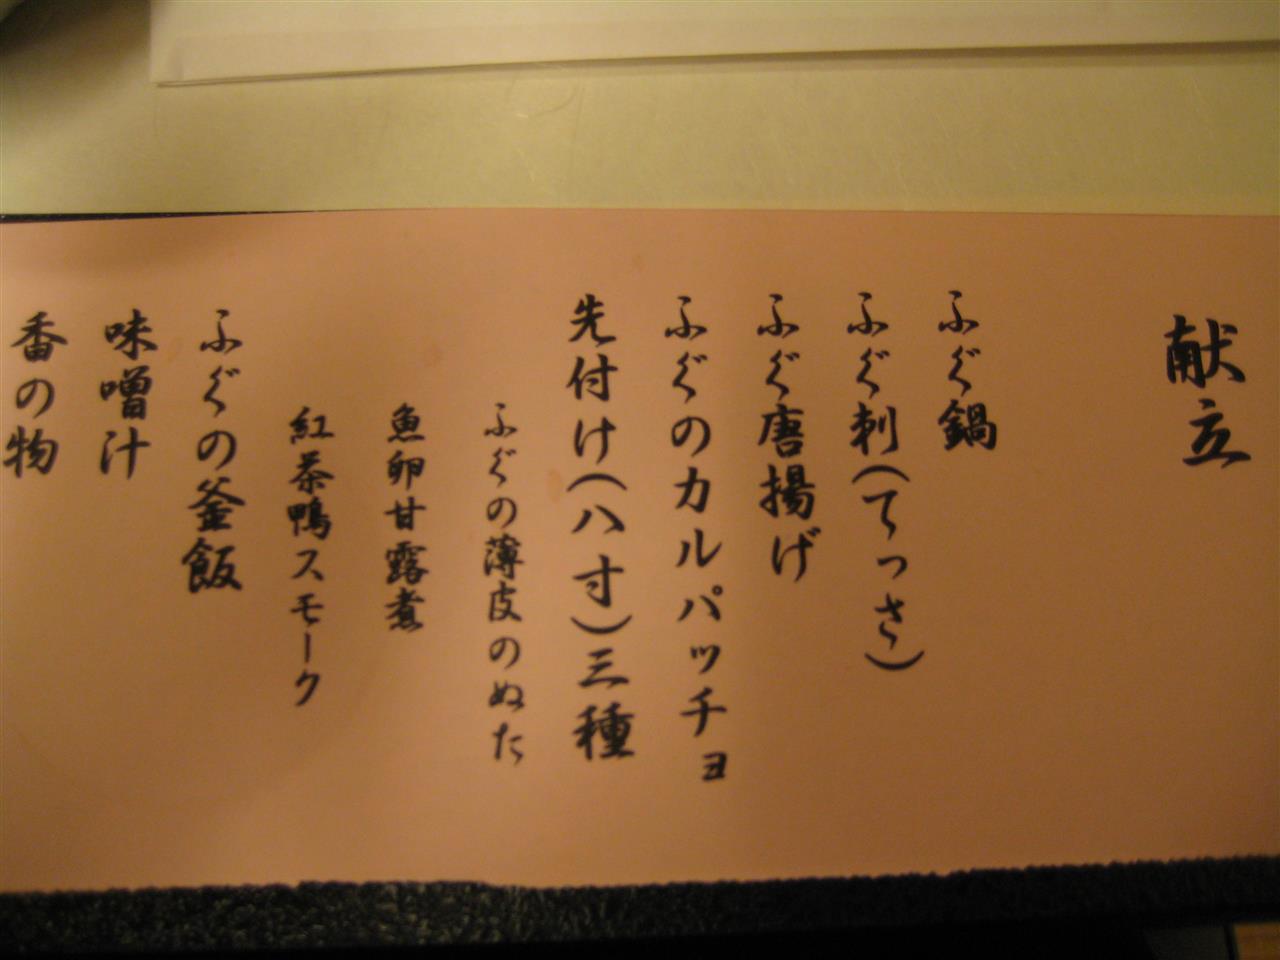 献立
ふぐ鍋
ふぐ刺(てっさ)
ふぐ唐揚げ
ふぐのカルパッチョ
先付け(八寸)三種
ふぐの薄皮のぬた
魚卵甘露煮
紅茶鴨スモーク
ふぐの釜飯
味噌汁
香の物